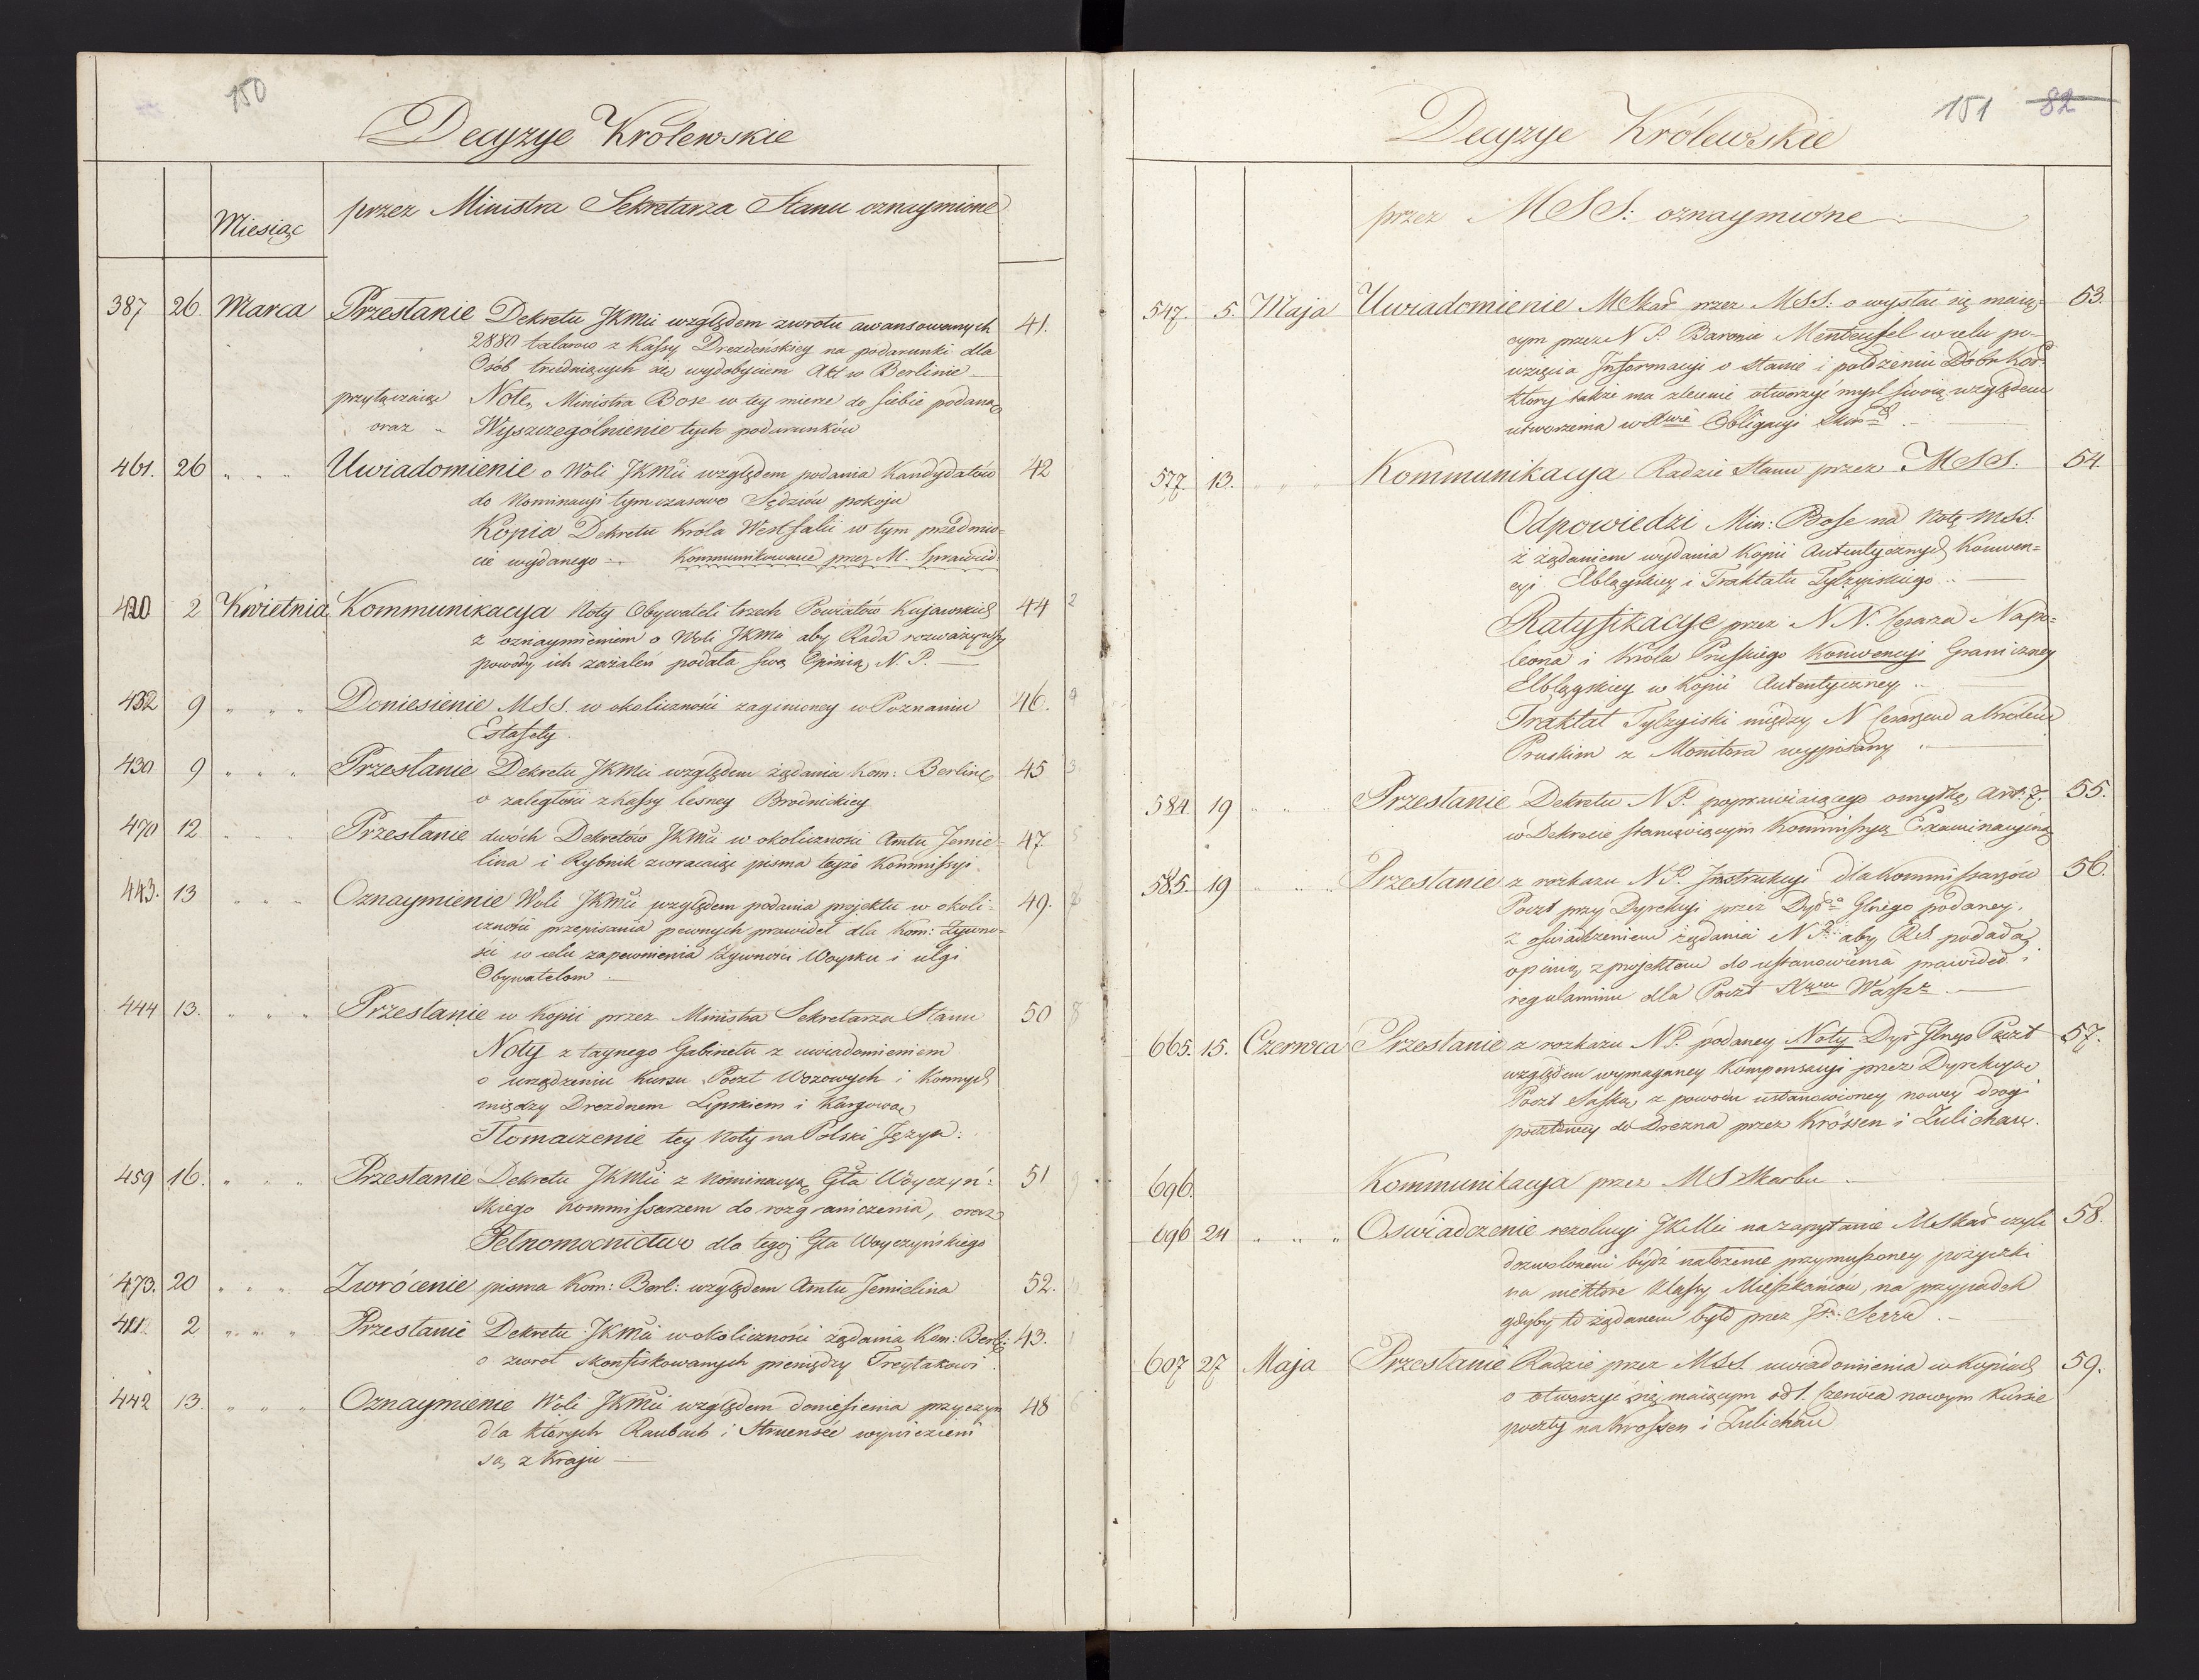 150
Decyzye Królewskie
Miesiąc
przez Ministra Sekretarza Stanu oznaymione
387 26 Marca Przesłanie Dekretu JKMci względem zwrotu awansowanych 41.
2880 talarow z Kassy Drezdeńskiey na podarunki dla
Osób trudniących się wydobyciem Akt w Berlinie
przyłączaiąc Notę, Ministra Bose w tey mierze do siebie podaną
oraz " Wyszczegolnienie tych podarunków
461. 26 " " " Uwiadomienie o Woli JKMci względem podania Kandydatów 42
do Nominacyi tymczasowo Sędziów pokoju
Kopia Dekretu Króla Westfalii w tym przedmio=
cie wydanego Kommunikowane przez M. Sprawied.
420 2 Kwietnia Kommunikacya Noty Obywateli trzech Powiatów Kujawskich 44
z oznaymieniem o Woli JKMci aby Rada rozważywszy
powody ich zażaleń podała swą Opinią N. P.
432 9 " " " Doniesienie MSS. w okoliczności zaginioney w Poznaniu 46.
Estafety.
430 9 " " " Przesłanie Dekretu JKMci względem żądania Kom: Berlinę 45
o zaległosci z Kassy lesney Brodnickiey
470 12 " " " Przesłanie dwóch Dekretów JKMci w okoliczności Amtu Jemie= 47.
lina i Rybnik zwracaiąc pisma teyże Kommissyi.
443. 13 " " " Oznaymienie Woli JKMci względem podania projektu w okoli= 49.
czności przepisania pewnych prawideł dla Kom: Żywno=
ści w celu zapewnienia Żywności Woysku i ulgi
Obywatelom
444 13. " " " Przesłanie w Kopii przez Ministra Sekretarza Stanu 50
Noty z taynego Gabinetu z uwiadomieniem
o urządzeniu Kursu Poczt Wozowych i Konnych
między Dreznem Lipskiem i Kargową
Tłomaczenie tey Noty na Polski Język:
459 16. " " " Przesłanie Dekretu JKMci z Nominacyą Gła Woyczyń= 51
skiego Kommissarzem do rozgraniczenia, oraz
Pełnomocnictwo dla tegoż Gła Woyczyńskiego
473. 20 " " " Zwrócenie pisma Kom: Berl: względem Amtu Jemielina 52.
412 2 " " " Przesłanie Dekretu JKMci w okoliczności żądania Kom: Berl: 43.
o zwrot skonfiskowanych pieniędzy Treytakowi.
442 13. " " " Oznaymienie Woli JKMci względem doniesienia przyczyn 48
dla których Raubach i Struensée wywiezieni
są z Kraju
151 82
Decyzye Królewskie
przez MSS: oznaymione
547. 5. Maja Uwiadomienie MSkar. przez MSS: o wysłać się maią= 53.
cym przez N P. Baronie Menteufel w celu po=
wzięcia Informacyi o stanie i położeniu Dóbr Kor.
który także ma zlecenie otworzyć myśl swoią względem
utworzenia w Obligacyi Skar.
577. 13. " " " Kommunikacya Radzie Stanu przez MSS. 54.
Odpowiedzi Min: Bose na Notę MSS:
z żądaniem wydania Kopii Autentycznych Konwen=
cyi Elblągskiey i Traktatu Tylzyiskiego
Ratyfikacye przez N N. Cesarza Napo=
leona i Króla Pruskiego Konwencyi Graniczney
Elblągskiey w Kopii Autentyczney
Traktat Tylzyiski między N Cesarzem a Królem
Pruskim z Monitora wypisany
584. 19 " " " Przesłanie Dekretu NP. poprawiaiącego omyłkę, Art. 7. 55.
w Dekrecie stanowiącym Kommissyą Examinacyiną
585. 19 " " " Przesłanie z rozkazu NP. Instrukcyi dla Kommissarzów 56.
Poczt przy Dyrekcyi przez Dyr. Głnego podaney.
z oświadczeniem żądania N P. aby RS. podała
opinią z projektem do ustanowienia prawideł i
regulaminu dla Poczt Warsz
665. 15. Czerwca Przesłanie z rozkazu NP. podaney Noty Dyr Głnego Poczt 57.
względem wymaganey Kompensacyi przez Dyrekcyą
Poczt Saską, z powodu ustanowioney nowey drogi
pocztowey do Drezna przez Krossen i Zulichau.
696. Kommunikacya przez MS Skarbu
696 24 " " " Oświadczenie rezolucyi JKMci na zapytanie MSkar czyli 58.
dozwoloném bydź nałożenie przymuszoney pożyczki
na niektóre klassy Mieszkańców, na przypadek
gdyby to żądanem było przez P. Serra.
607 27 Maja Przesłanie Radzie przez MSS. uwiadomienia w Kopiach 59.
o otworzyć się maiącym od 1. Czerwca nowym Kursie
poczty na Krossen i Zulichau